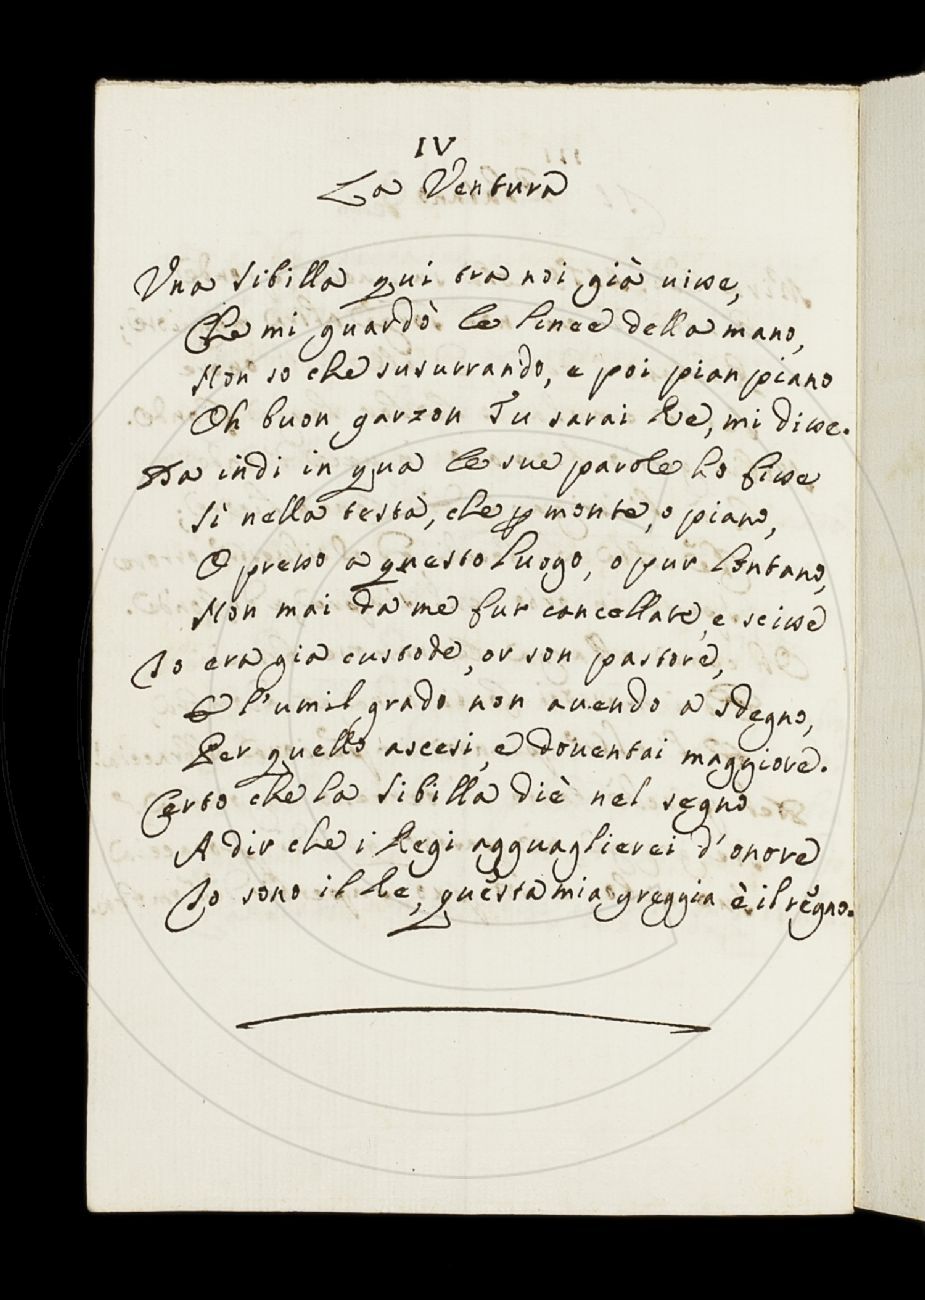 IV
La Ventura
Una Sibilla qui tra noi già visse,
Che mi guardò le linee della mano,
Non so che susurrando, e poi pian piano
Oh buon garzon Tu sarai Re, mi disse.
Da indi in qua le sue parole ho fisse
Sì nella testa, che p monte, o piano,
O presso a questo luogo, o pur lontano,
Non mai da me fur cancellate, e scisse
Io era già custode, or son pastore,
E l'umil grado non avendo a sdegno,
Per quello ascesi, e doventai maggiore.
Certo che la Sibilla diè nel segno
A dir che i Regi agguaglierei d'onore
Io sono il Re, questa mia greggia è il regno.